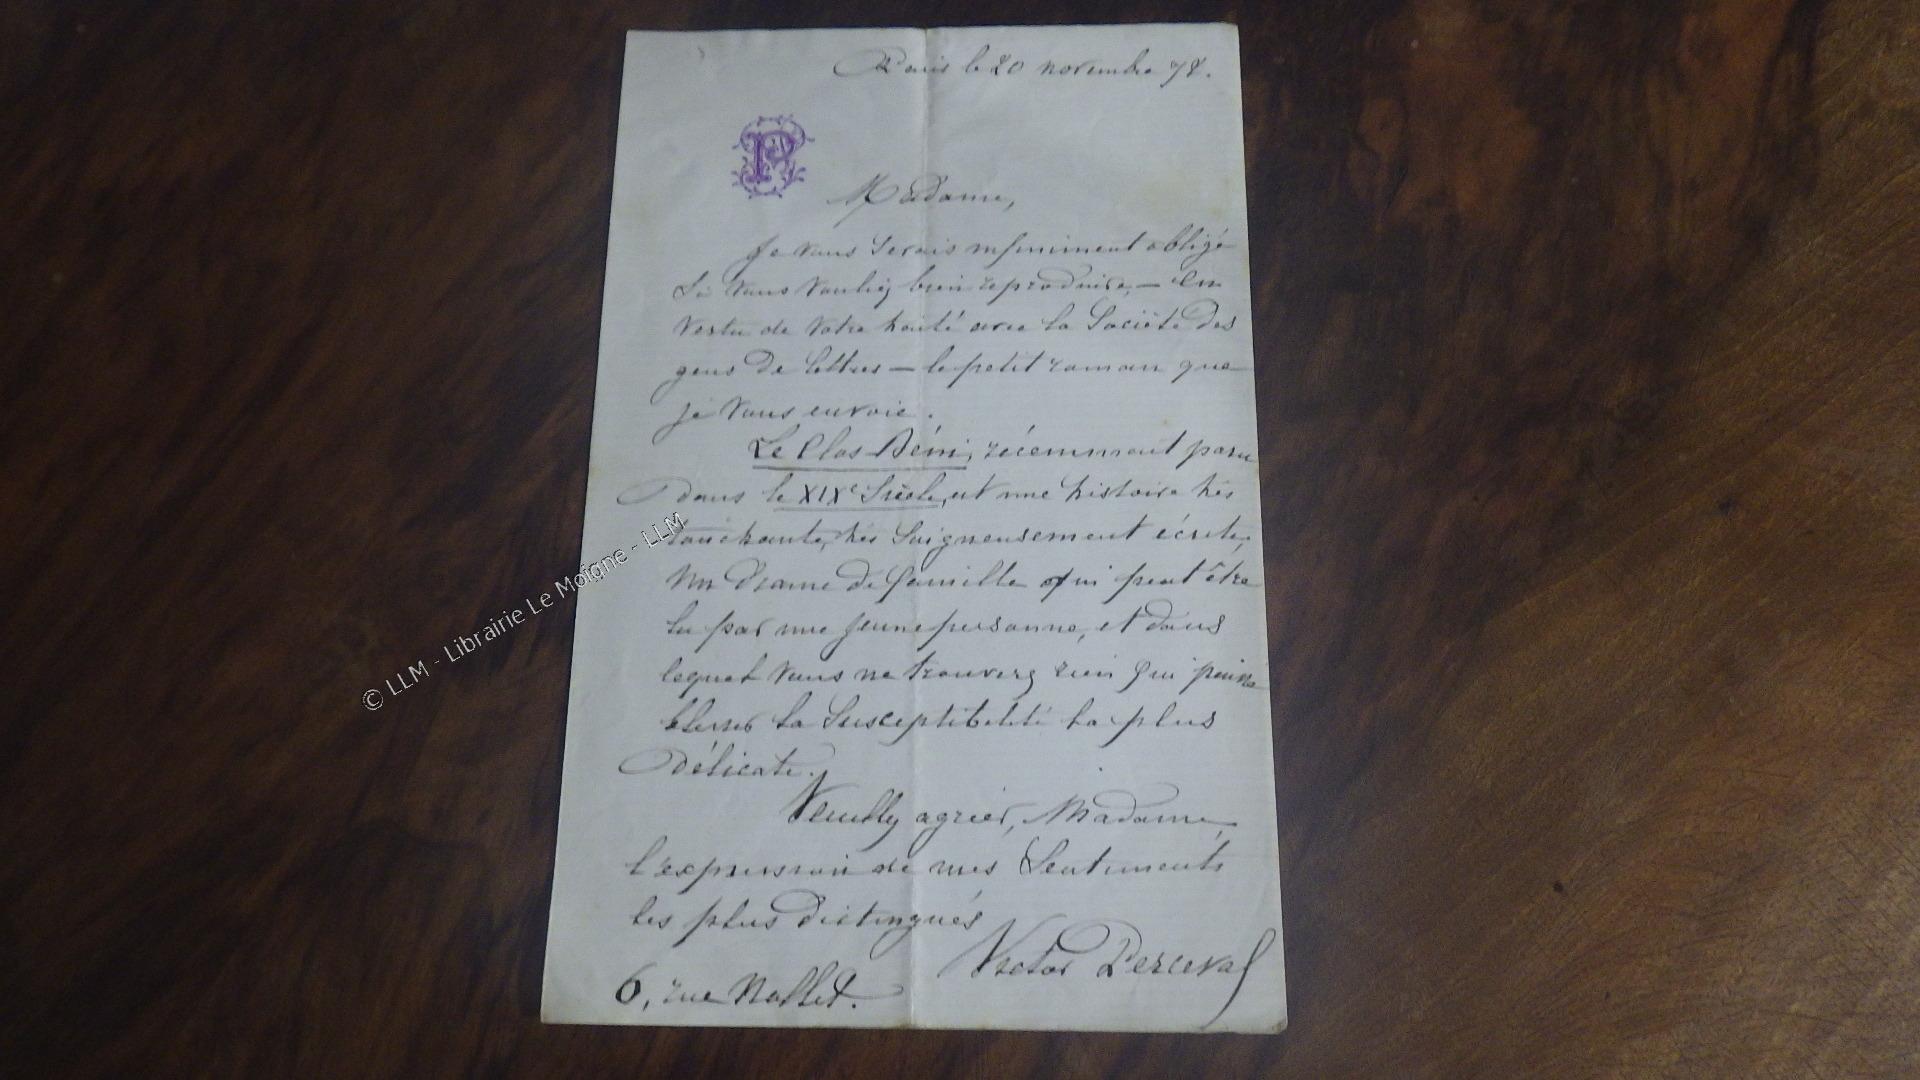 Paris le 20 novembre 78.
P
Madame,
Je vous serais infiniment obligé
si vous vouliez bien reproduire, — en
vertu de votre traité avec la Société des
gens de lettres — le petit roman que
je vous envoie.
Le Clos Béni, récemment paru
dans le XIXe Siècle, est une histoire très
touchante, très soigneusement écrite,
un drame de famille qui peut être
lu par une jeune personne, et dans
lequel vous ne trouverez rien qui puisse
blesser la susceptibilité la plus
délicate.
Veuillez agréer, Madame,
l'expression de mes sentiments
les plus distingués
Victor Perceval
6, rue Nollet.
© LLM - Librairie Le Moigne - LLM